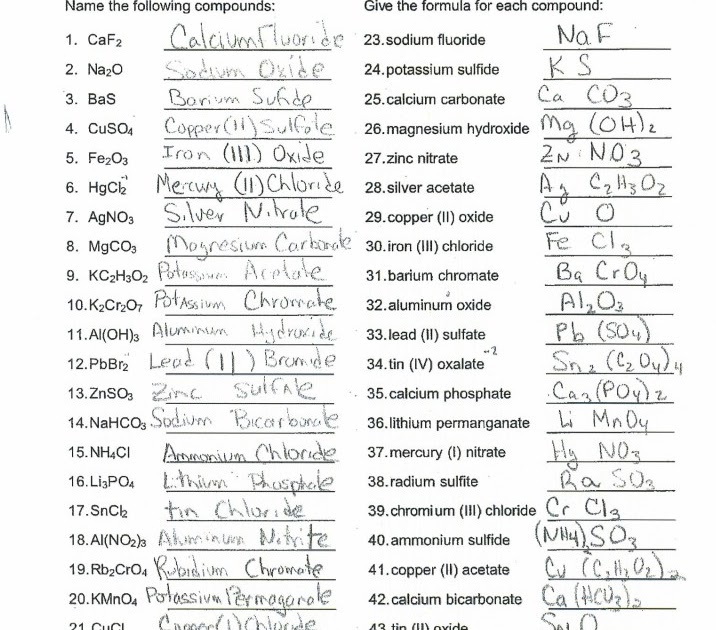 Name the following compounds:
1. CaF₂ Calcium Fluoride
2. Na₂O Sodium Oxide
3. BaS Barium Sufide
4. CuSO₄ Copper(II) Sulfate
5. Fe₂O₃ Iron (III) Oxide
6. HgCl₂ Mercury (II) Chloride
7. AgNO₃ Silver Nitrate
8. MgCO₃ Magnesium Carbonate
9. KC₂H₃O₂ Potassium Acetate
10. K₂Cr₂O₇ Potassium Chromate
11. Al(OH)₃ Aluminum Hydroxide
12. PbBr₂ Lead (II) Bromide
13. ZnSO₃ Zinc Sulfate
14. NaHCO₃ Sodium Bicarbonate
15. NH₄Cl Ammonium Chloride
16. Li₃PO₄ Lithium Phosphate
17. SnCl₂ tin Chloride
18. Al(NO₂)₃ Aluminum Nitrite
19. Rb₂CrO₄ Rubidium Chromate
20. KMnO₄ Potassium Permaganate
21. CuCl Copper(I) Chloride
Give the formula for each compound:
23. sodium fluoride NaF
24. potassium sulfide K S
25. calcium carbonate Ca CO₃
26. magnesium hydroxide Mg (OH)₂
27. zinc nitrate ZN NO₃
28. silver acetate Ag C₂H₃O₂
29. copper (II) oxide Cu O
30. iron (III) chloride Fe Cl₃
31. barium chromate Ba CrO₄
32. aluminum oxide Al₂O₃
33. lead (II) sulfate Pb (SO₄)
34. tin (IV) oxalate⁻² Sn₂ (C₂O₄)₄
35. calcium phosphate Ca₃(PO₄)₂
36. lithium permanganate Li MnO₄
37. mercury (I) nitrate Hg NO₃
38. radium sulfite Ra SO₃
39. chromium (III) chloride Cr Cl₃
40. ammonium sulfide (NH₄)SO₃
41. copper (II) acetate Cu (C₂H₃O₂)₂
42. calcium bicarbonate Ca(HCO₃)₂
43. tin (II) oxide Sn O